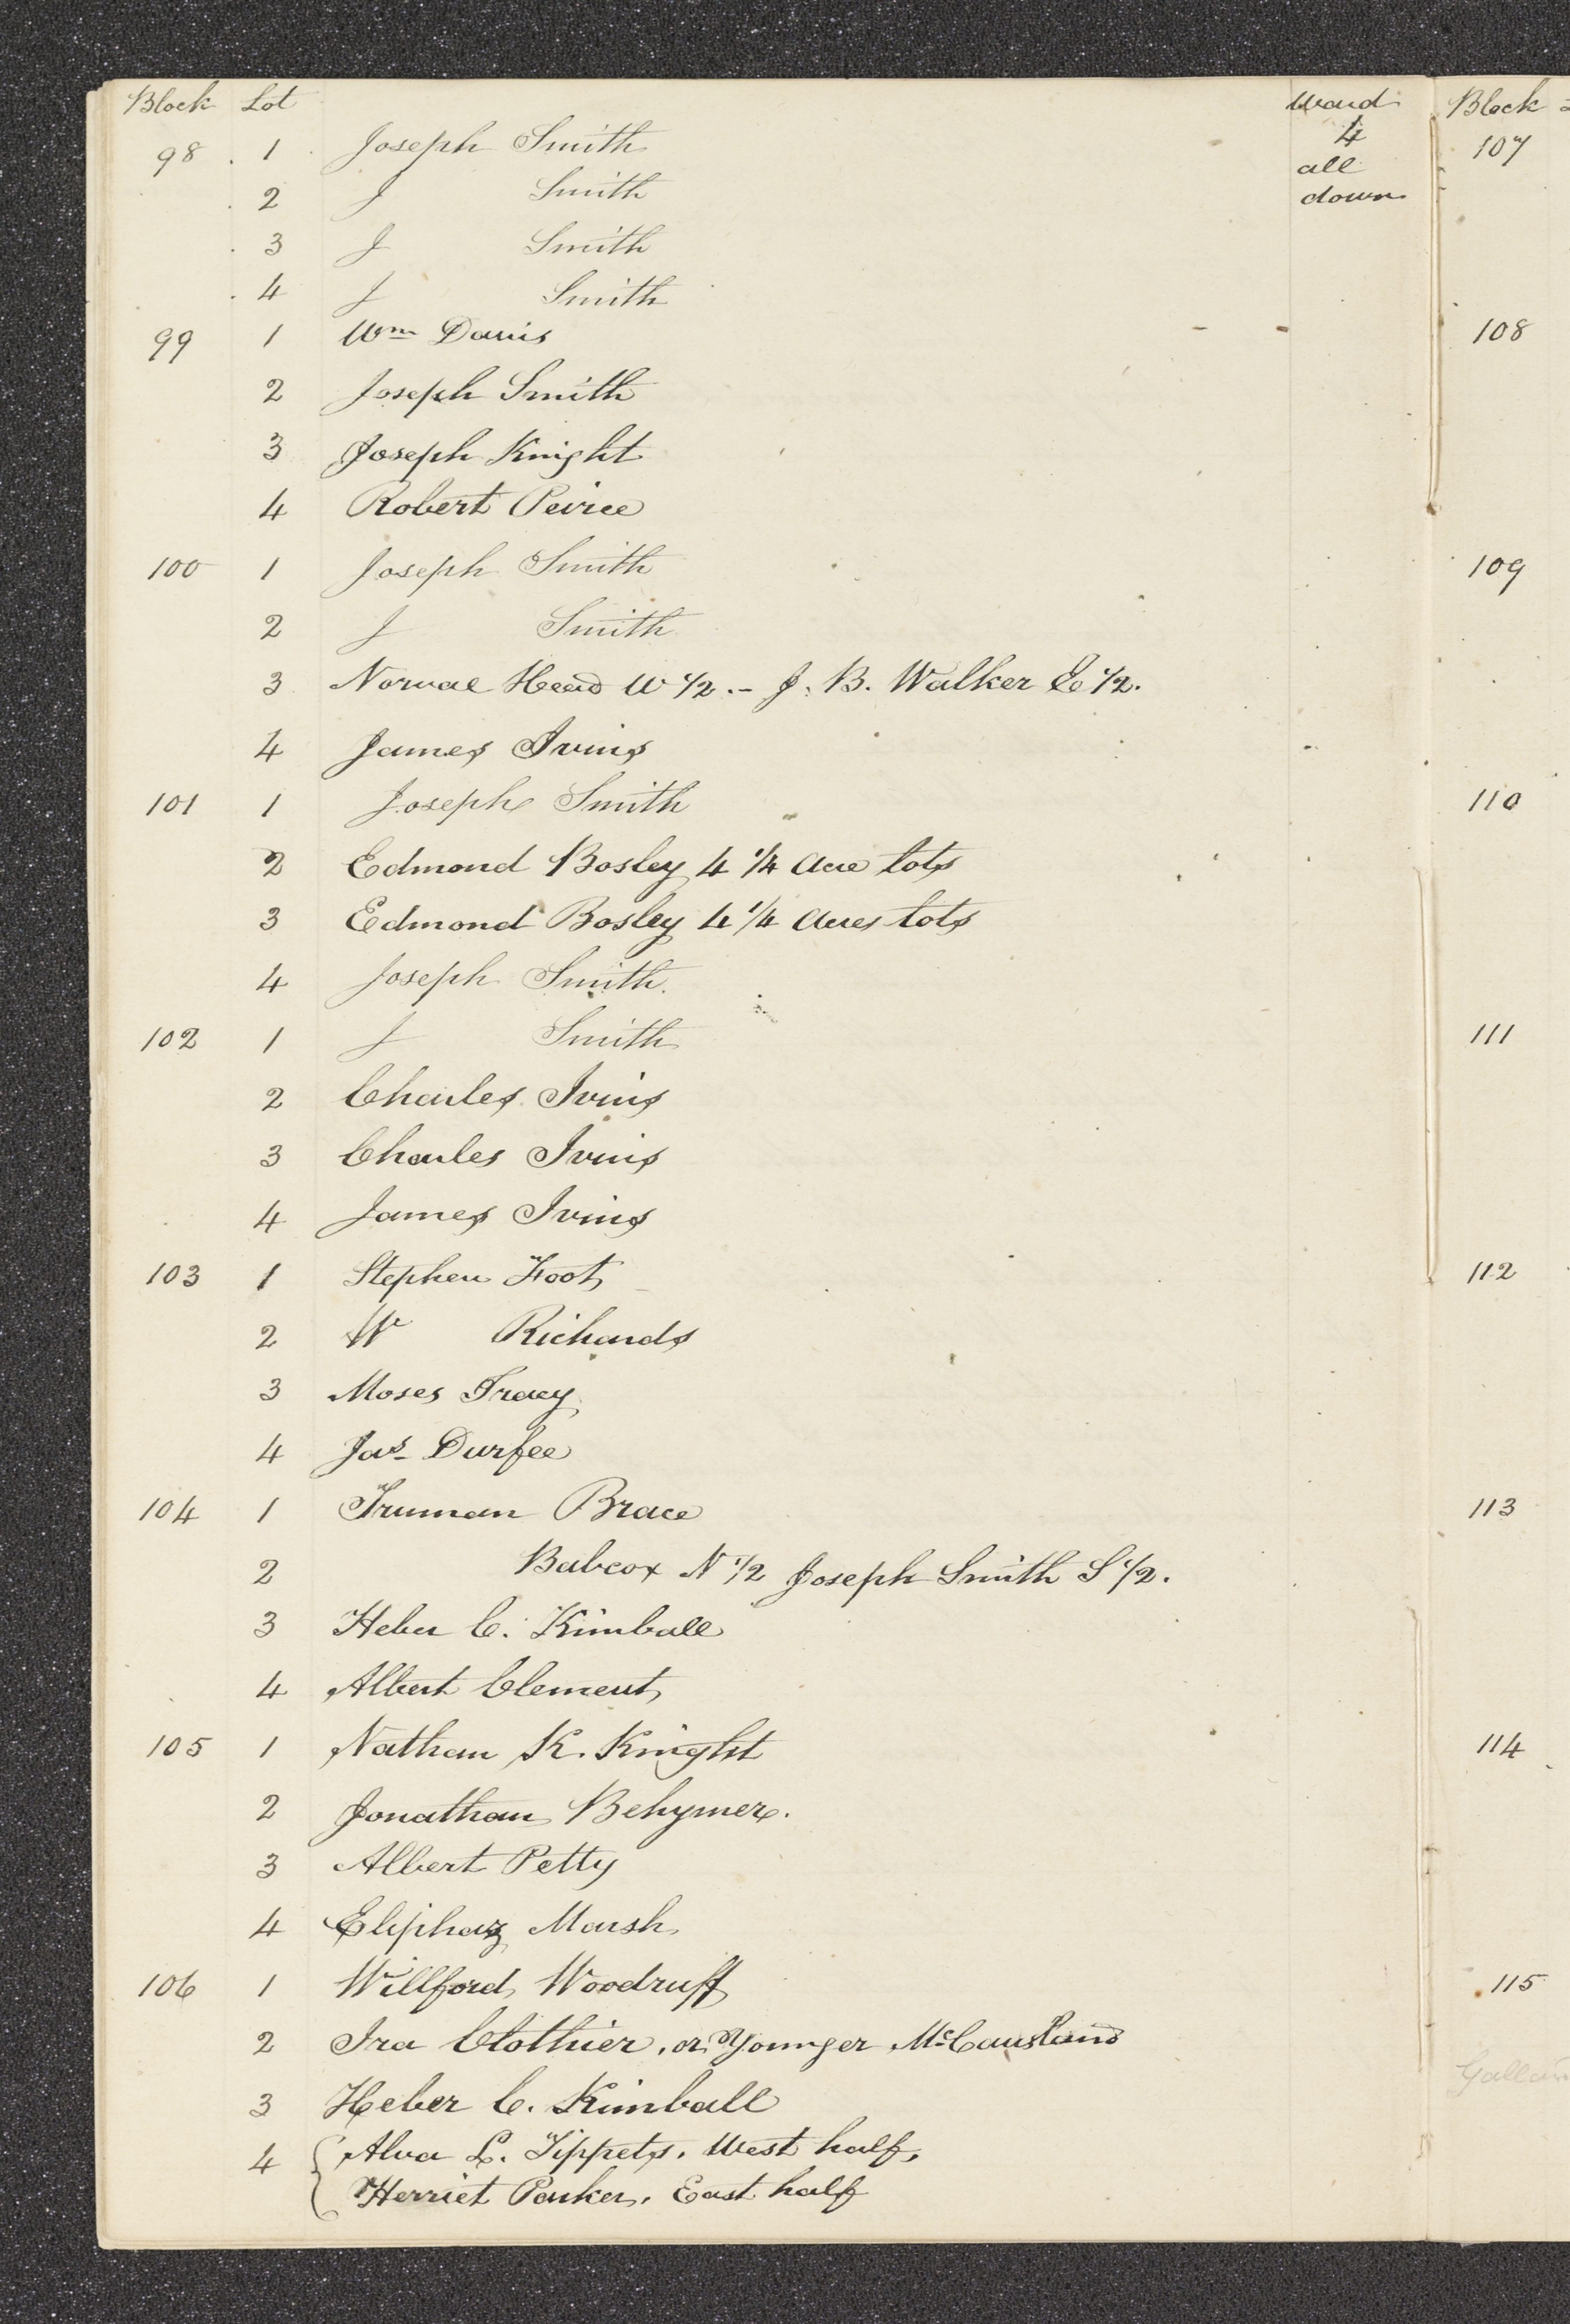 Block Lot Ward
98 1 Joseph Smith 4
all
2 J Smith down
3 J Smith
4 J Smith
99 1 Wm Davis
2 Joseph Smith
3 Joseph Knight
4 Robert Peirce
100 1 Joseph Smith
2 J Smith
3 Norval Head W 1/2. - J. B. Walker E 1/2.
4 James Ivins
101 1 Joseph Smith
2 Edmond Bosley 4 1/4 Acre lots
3 Edmond Bosley 4 1/4 Acres lots
4 Joseph Smith.
102 1 J Smith
2 Charles Ivins
3 Charles Ivins
4 James Ivins
103 1 Stephen Foot
2 W Richards
3 Moses Tracy
4 Jas. Durfee
104 1 Truman Brace
2 Babcox N 1/2 Joseph Smith S 1/2.
3 Heber C. Kimball
4 Albert Clement
105 1 Nathan K. Knight
2 Jonathan Behymer.
3 Albert Petty
4 Eliphaz Marsh
106 1 Willford Woodruff
2 Ira Clothier, or Younger McCausland
3 Heber C. Kimball
4 { Alva L. Tippets. West half,
Herriet Parker. East half
Block
107
108
109
110
111
112
113
114
115